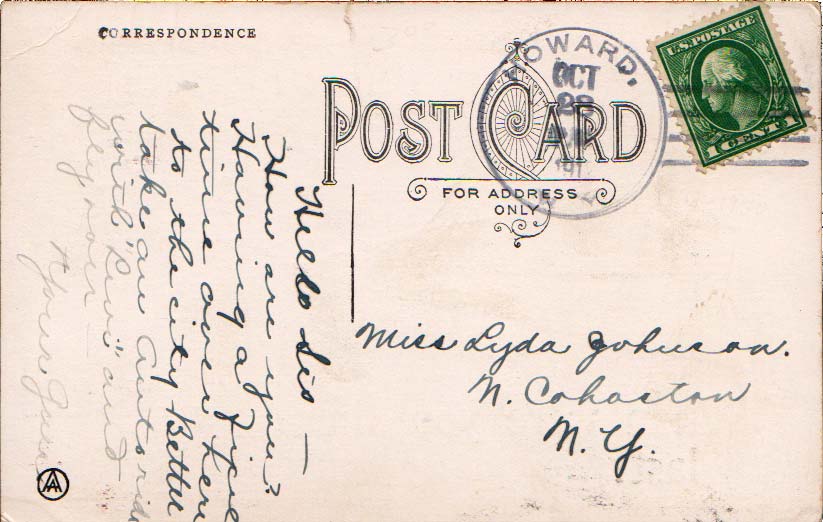 CORRESPONDENCE
POST CARD
FOR ADDRESS
ONLY
HOWARD,
OCT
28
191
U.S. POSTAGE
1 CENT 1
Miss Lyda Johnson.
N. Cohocton
N. Y.
Hello Sis —
How are you?
Having a fine
time over here
to the city Better
take an auto ride
with "Levi" and
fly over
Yours
AA